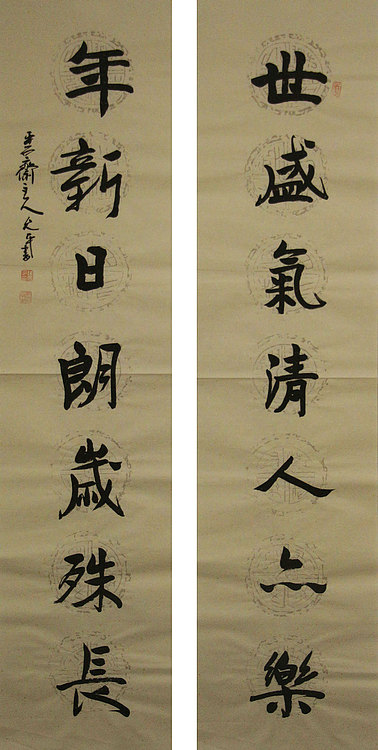 世盛氣清人亦樂
年新日朗歲殊長
齋主人